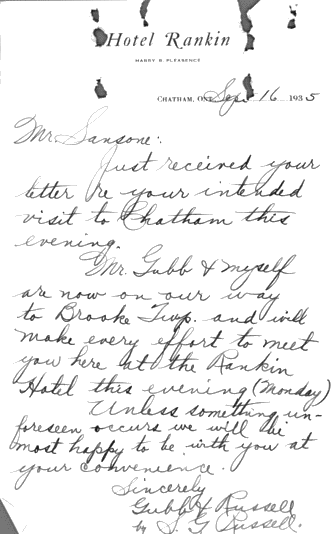 Hotel Rankin
HARRY B. PLEASENCE
CHATHAM, ONT. Sept 16 1935
Mr. Sansone:
Just received your
letter re your intended
visit to Chatham this
evening.
Mr. Gubb & myself
are now on our way
to Brooke Twp. and will
make every effort to meet
you here at the Rankin
Hotel this evening (Monday)
Unless something un-
foreseen occurs we will be
most happy to be with you at
your convenience.
Sincerely
Gubb & Russell
by S. G. Russell.